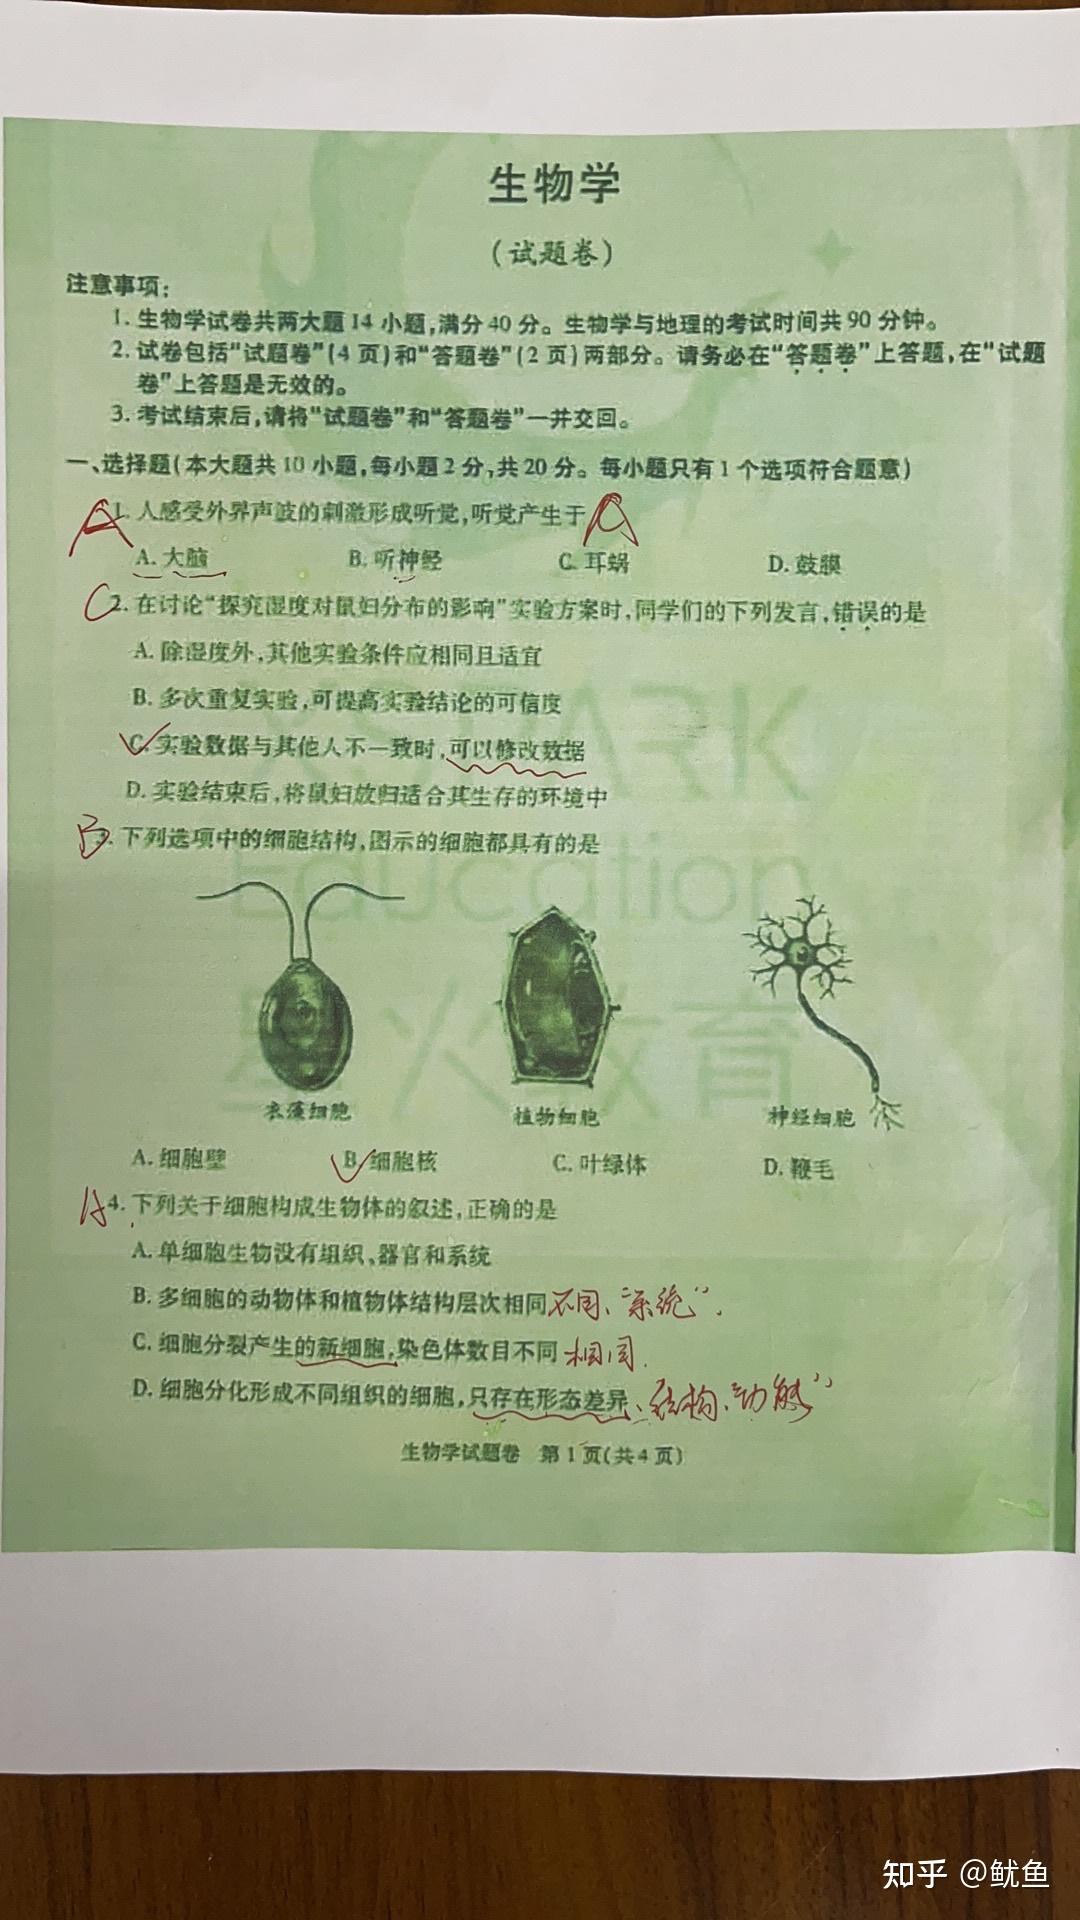 生物学
(试题卷)
注意事项:
1. 生物学试卷共两大题14小题,满分40分。生物学与地理的考试时间共90分钟。
2. 试卷包括“试题卷”(4页)和“答题卷”(2页)两部分。请务必在“答题卷”上答题,在“试题
卷”上答题是无效的。
3. 考试结束后,请将“试题卷”和“答题卷”一并交回。
一、选择题(本大题共10小题,每小题2分,共20分。每小题只有1个选项符合题意)
A 1. 人感受外界声波的刺激形成听觉,听觉产生于 A
A. 大脑 B. 听神经 C. 耳蜗 D. 鼓膜
C 2. 在讨论“探究湿度对鼠妇分布的影响”实验方案时,同学们的下列发言,错误的是
A. 除湿度外,其他实验条件应相同且适宜
B. 多次重复实验,可提高实验结论的可信度
C. 实验数据与其他人不一致时,可以修改数据
D. 实验结束后,将鼠妇放归适合其生存的环境中
B 3. 下列选项中的细胞结构,图示的细胞都具有的是
衣藻细胞 植物细胞 神经细胞
A. 细胞壁 B. 细胞核 C. 叶绿体 D. 鞭毛
A 4. 下列关于细胞构成生物体的叙述,正确的是
A. 单细胞生物没有组织、器官和系统
B. 多细胞的动物体和植物体结构层次相同 不同、“系统”.
C. 细胞分裂产生的新细胞,染色体数目不同 相同.
D. 细胞分化形成不同组织的细胞,只存在形态差异、结构、功能”
生物学试题卷 第1页(共4页)
XSPARK
Education
星火教育
知乎 @鱿鱼